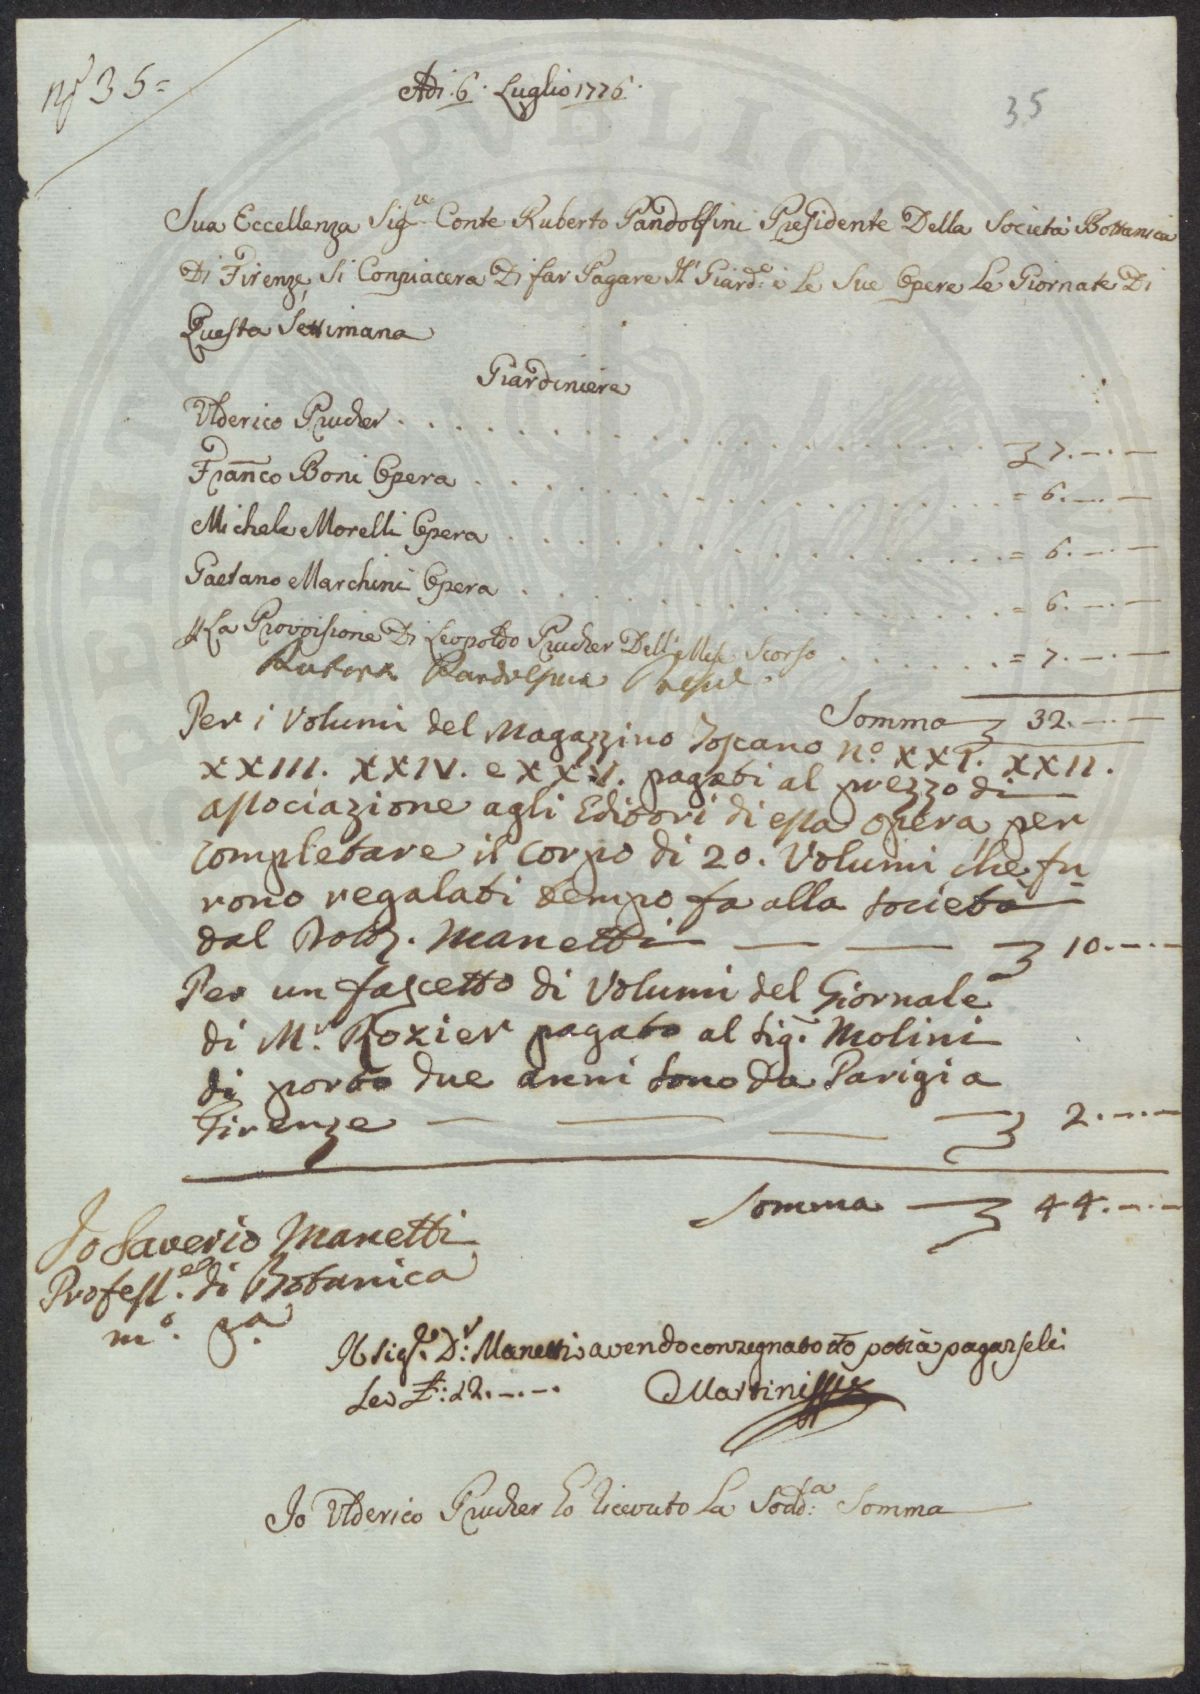 N° 35=
Adi. 6. Luglio 1776.
35
Sua Eccellenza Sig.re Conte Ruberto Pandolfini Presidente Della Società Bottanica
Di Firenze, Si Conpiacera Di far Pagare Il Giard.e i Le Sue Opere Le Giornate Di
Questa Settimana
Giardiniere
Ulderico Prucher . . . 7.—.—
Franco Boni Opera . . . = 6.—.—
Michele Morelli Opera . . . = 6.—.—
Gaetano Marchini Opera . . . = 6.—.—
La Provvisione Di Leopoldo Prucher Dell Mese Scorso . . . = 7.—.—
Ruberto Pandolfini
Somma 32.—.—
Per i Volumi del Magazzino Toscano n.o XXI. XXII.
XXIII. XXIV. e XXV. pagati al prezzo di
associazione agli Editori di essa opera per
completare il corpo di 20. Volumi che fu
rono regalati tempo fa alla Società
dal Dott. Manetti — — 10.—.—
Per un fascetto di Volumi del Giornale
di M.r Rozier pagato al Sig. Molini
di porto due anni sono da Parigi a
Firenze — — — 2.—.—
Somma — 44.—.—
Io Saverio Manetti
Profess.e di Botanica
m.o p.a
Il Sig.e D.r Manetti avendo consegnato potrà pagarseli
Le £: 12.—.—. Martini
Io Ulderico Prucher ho ricevuto La Sodd.a Somma
PVBLICA